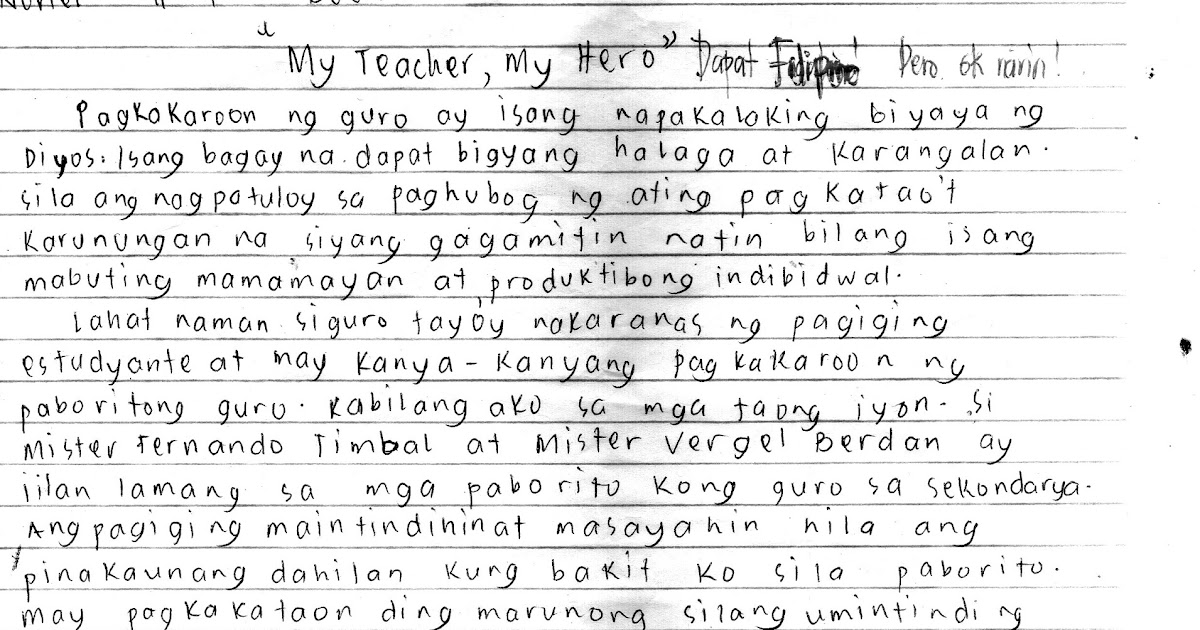 "My Teacher, My Hero" Dapat Filipino! Pero ok narin!
Pagkakaroon ng guro ay isang napakalaking biyaya ng
Diyos. Isang bagay na dapat bigyang halaga at karangalan.
Sila ang nagpatuloy sa paghubog ng ating pagkatao't
karunungan na siyang gagamitin natin bilang isang
mabuting mamamayan at produktibong indibidwal.
Lahat naman siguro tayo'y nakaranas ng pagiging
estudyante at may kanya-kanyang pagkakaroon ng
paboritong guro. Kabilang ako sa mga taong iyon. Si
Mister Fernando Timbal at Mister Vergel Berdan ay
iilan lamang sa mga paborito kong guro sa sekondarya.
Ang pagiging maintindininat masayahin nila ang
pinakaunang dahilan kung bakit ko sila paborito.
May pagkakataon ding marunong silang umintindi ng